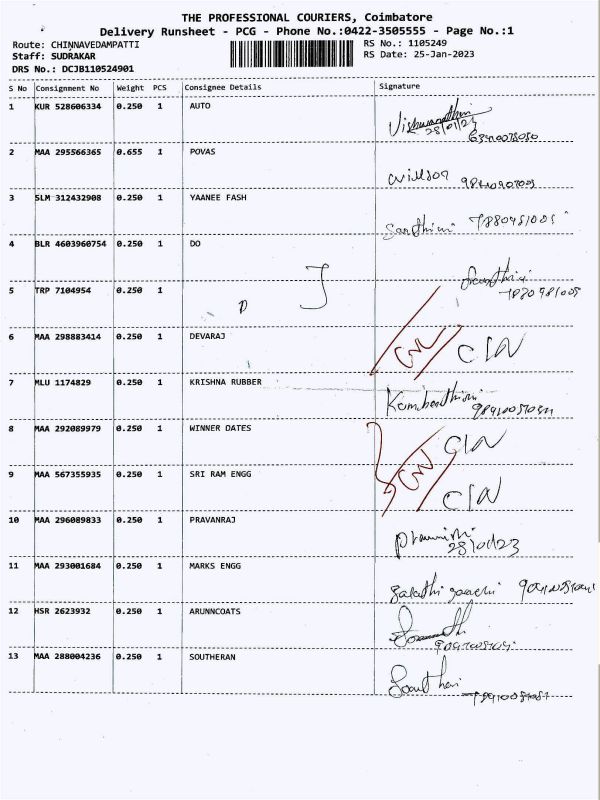 THE PROFESSIONAL COURIERS, Coimbatore
Delivery Runsheet - PCG - Phone No.:0422-3505555 - Page No.:1
Route: CHINNAVEDAMPATTI RS No.: 1105249
Staff: SUDRAKAR RS Date: 25-Jan-2023
DRS No.: DCJB110524901
S No Consignment No Weight PCS Consignee Details Signature
1 KUR 528606334 0.250 1 AUTO
28/01/23
2 MAA 295566365 0.655 1 POVAS
3 SLM 312432908 0.250 1 YAANEE FASH
4 BLR 4603960754 0.250 1 DO
5 TRP 7104954 0.250 1
6 MAA 298883414 0.250 1 DEVARAJ
7 MLU 1174829 0.250 1 KRISHNA RUBBER
8 MAA 292089979 0.250 1 WINNER DATES
9 MAA 567355935 0.250 1 SRI RAM ENGG
10 MAA 296089833 0.250 1 PRAVANRAJ
28/01/23
11 MAA 293001684 0.250 1 MARKS ENGG
12 HSR 2623932 0.250 1 ARUNNCOATS
13 MAA 288004236 0.250 1 SOUTHERAN